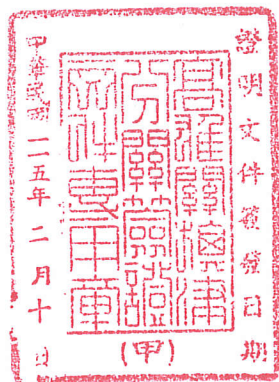 證明文件簽發日期
高雄關旗津
分關簽證
文件專用章
中華民國一一五年二月十日
(甲)